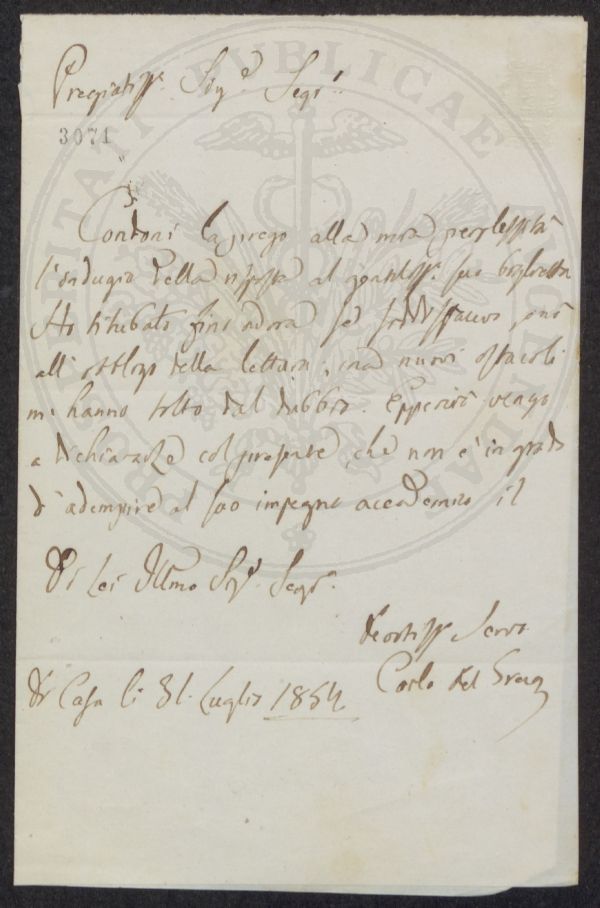 Pregiatiss. Sigr. Segr.
3071
Condoni la prego alla mia perplessità
l'indugio della risposta al gentiliss. suo biglietto
Ho titubato fino adora se soddisfaceva, o nò
all'obbligo della lettura; ma nuovi ostacoli
mi hanno tolto dal dubbio. Epperciò vengo
a dichiararle col presente, che non è in grado
d'adempire al suo impegno accademico il
Di Lei Illmo Sigr. Segr.
Devotiss Servo
Carlo del
Di Casa li 31. Luglio 1854
PROSPERITATI PUBLICAE AUGENDAE